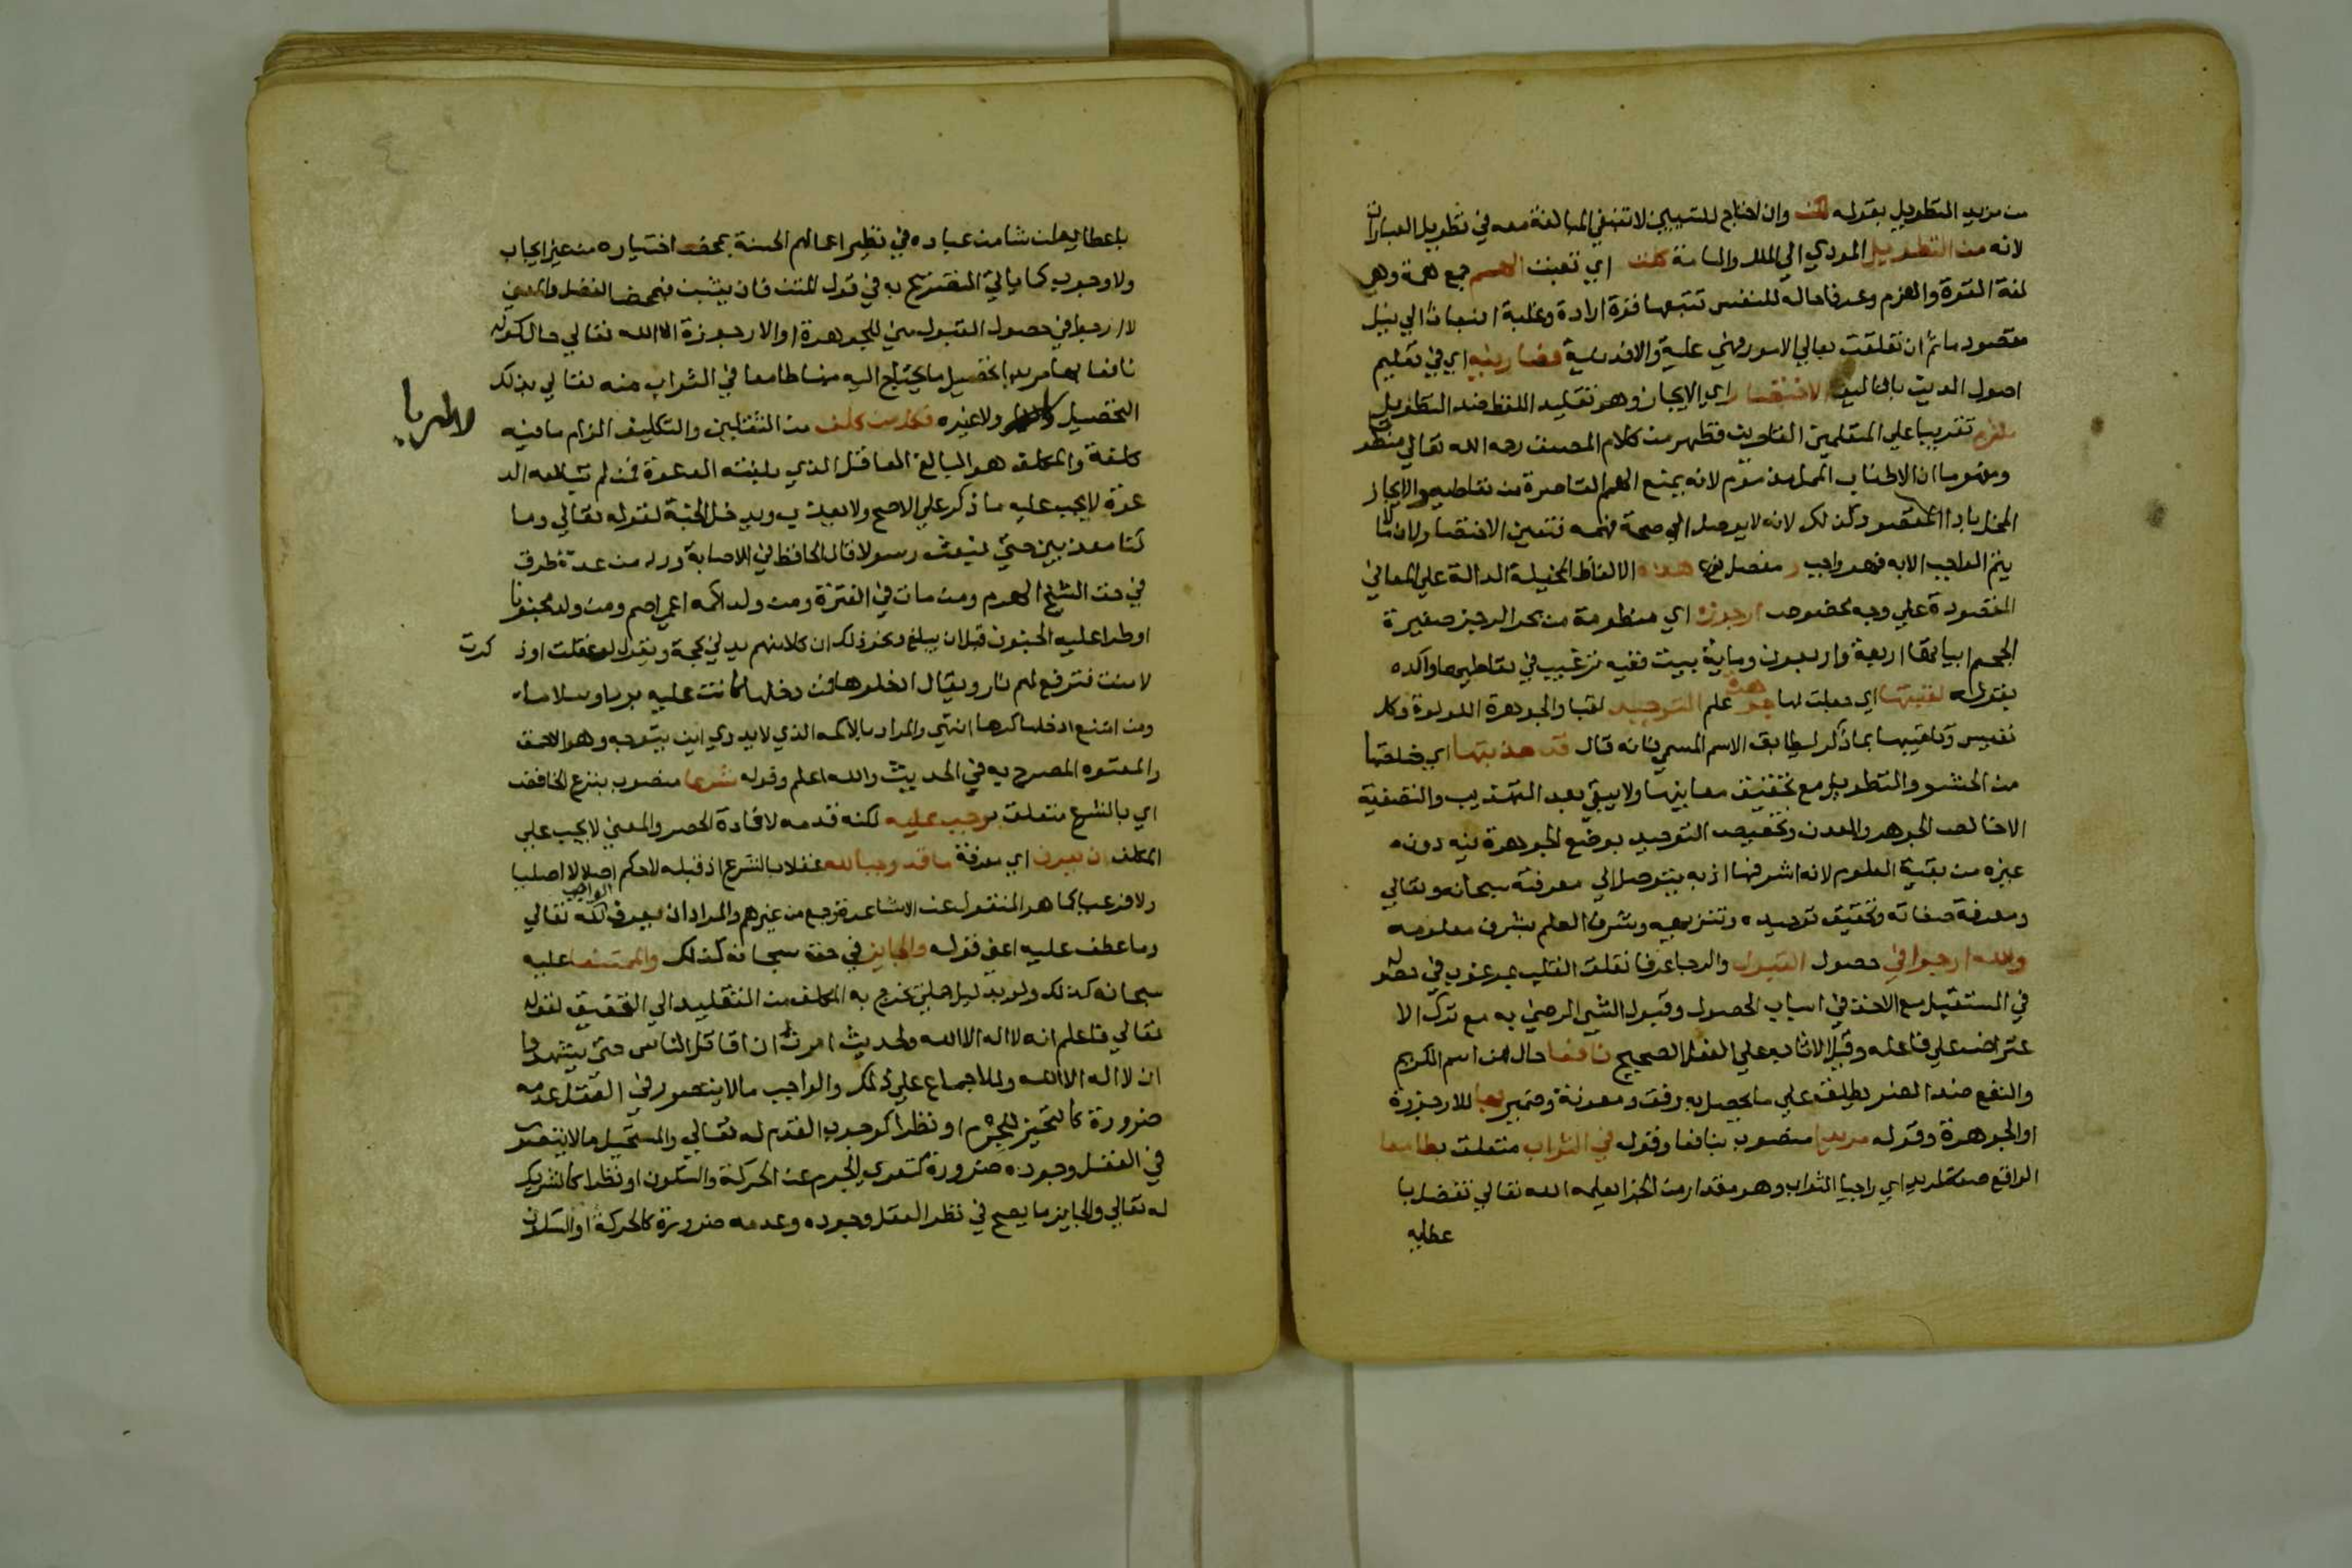 من مزيد التطويل بقوله لكن وان احتاج للتبيين لا تنبغي المبالغة معه في تطويل العبارات
لانه من التطويل المودي الي الملل والسامة كلت اي تعبت الهمم جمع همة وهي
لغة القوة والعزم وعرفا حالة للنفس تتبعها قوة ارادة وغلبة انبعاث الي نيل
مقصود ما ثم ان تعلقت بمعالي الامور فهي علية والا فدنية فصار فيه اي في تعليم
اصول الدين بالتاليف الاختصار اي الايجاز وهو تقليل اللفظ ضد التطويل
ملتزم تقريبا علي المتعلمين القاصرين فظهر من كلام المصنف رحمه الله تعالي منطو
ومفهوما ان الاطناب الممل مذموم لانه يمنع الهمم القاصرة من تعاطيه والايجاز
المخل باداء المقصود كذلك لانه لا يوصل الي صحة فهمه فتعين الاختصار لان ما لا
يتم الواجب الا به فهو واجب و مفصل نوع هذه الالفاظ المخيلة الدالة علي المعاني
المقصودة علي وجه مخصوص ارجوزة اي منظومة من بحر الرجز صغيرة
الحجم ابياتها اربعة واربعون وماية بيت ففيه ترغيب في تعاطيها واكده
بقوله لقبتها اي جعلت لها جوهرة علم التوحيد لقبا والجوهرة اللولوة وكل
نفيس وتلقيبها بما ذكر ليطابق الاسم المسمي فانه قال قد هذبتها اي خلصتها
من الحشو والتطويل مع تحقيق معانيها ولا يبقي بعد التهذيب والتصفية
الا خالص الجوهر والمعدن وتخصيص التوحيد بوضع الجوهرة فيه دون
غيره من بقية العلوم لانه اشرفها اذ به يتوصل الي معرفته سبحانه وتعالي
ومعرفة صفاته وتحقيق توحيده وتنزيهه وشرف العلم بشرف معلومه
والله ارجوا في حصول القبول والرجا عرفا تعلق القلب بمرغوب في حصوله
في المستقبل مع الاخذ في اسباب الحصول وقبول الشي الرضي به مع ترك الا
عتراض علي فاعله وقيل الاثابة علي العمل الصحيح نافعا حال من اسم الكريم
والنفع ضد الضر يطلق علي ما يحصل به رفق ومعونة وضمير بها للارجوزة
او الجوهرة وقوله مريدا منصوب بنافعا وقوله في الثواب متعلق بطامعا
الواقع صفة لمريد اي راجيا الثواب وهو مقدار من الجزا يعلمه الله تعالي تفضل با
عطايه
باعطايه لمن شا من عباده في نظير اعمالهم الحسنة بمحض اختياره من غير ايجاب
ولا وجوب كما ياتي التصريح به في قول المتن فان يثبنا فبمحض الفضل والمعني
لا ارجوا في حصول القبول مني للجوهرة او الارجوزة الا الله تعالي حال كونه
نافعا بها مريدا تحصيل ما يحتاج اليه منها طامعا في الثواب منه تعالي بذلك
التحصيل ولا غيره فكل من كلف من الثقلين والتكليف الزام ما فيه
كلفة والمكلف هو البالغ العاقل الذي بلغته الدعوة فمن لم تبلغه الد
عوة لا يجب عليه ما ذكر علي الاصح ولا يعذب ويدخل الجنة لقوله تعالي وما
كنا معذبين حتي نبعث رسولا قال الحافظ في الاصابة ورد من عدة طرق
في حق الشيخ الهرم ومن مات في الفترة ومن ولد اكمه اعمي اصم ومن ولد مجنونا
او طرا عليه الجنون قبل ان يبلغ ونحو ذلك ان كلا منهم يدلي بحجة ويقول لو عقلت او ذ
كرت
لامنت فترفع لهم نار ويقال ادخلوها فمن دخلها كانت عليه بردا وسلاما
ومن امتنع ادخلها كرها انتهي والمراد بالاكمه الذي لا يدري اين يتوجه وهو الاحمق
والمعتوه المصرح به في الحديث والله اعلم وقوله شرعا منصوب بنزع الخافض
اي بالشرع متعلق بوجب عليه لكنه قدمه لافادة الحصر والمعني لا يجب علي
المكلف ان يعرف اي معرفة ما قد وجبا لله عقلا بالشرع اذ قبله لا حكم اصلا لا اصليا
ولا فرعيا كما هو المنقول عن الاشاعرة وجمع من غيرهم والمراد ان يعرف الواجب لله تعالي
وما عطف عليه اعني قوله والجايز في حقه سبحانه كذلك والممتنعا عليه
سبحانه كذلك ولو بدليل جملي يخرج به المكلف من التقليد الي التحقيق لقوله
تعالي فاعلم انه لا اله الا الله ولحديث امرت ان اقاتل الناس حتي يشهدوا
ان لا اله الا الله وللاجماع علي ذلك والواجب ما لا يتصور في العقل عدمه
ضرورة كالتحيز للجرم او نظرا كوجوب القدم له تعالي والمستحيل ما لا يتصور
في العقل وجوده ضرورة كتعري الجرم عن الحركة والسكون او نظرا كالشريك
له تعالي والجايز ما يصح في نظر العقل وجوده وعدمه ضرورة كالحركة او السكون